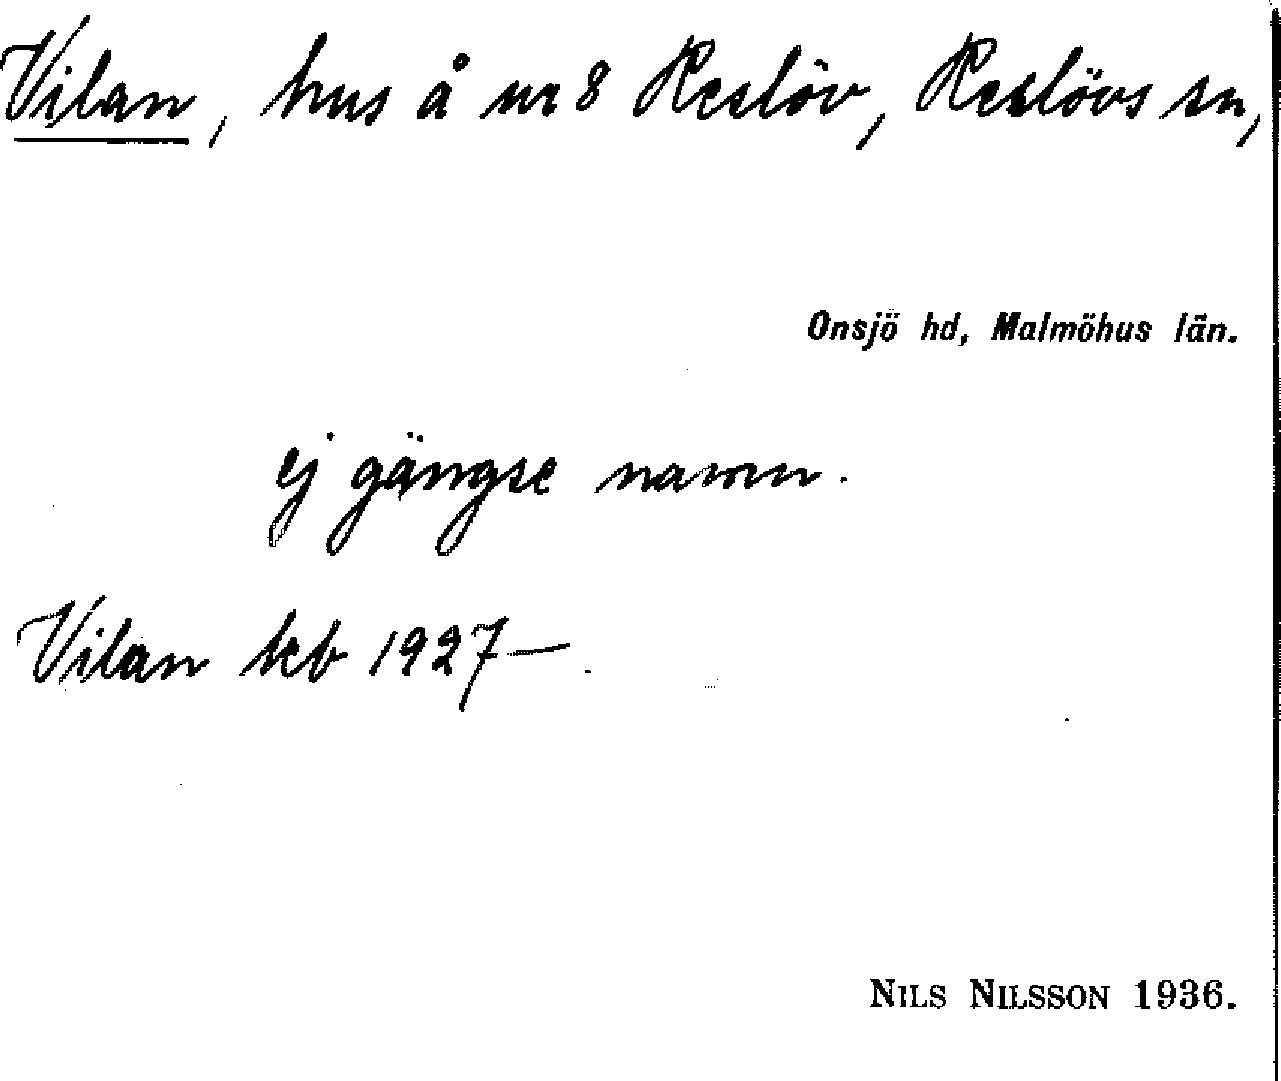 Vilan, hus å nr 8 Reslöv, Reslövs sn,
Onsjö hd, Malmöhus län.
ej gängse namn.
Vilan kb 1927—.
NILS NILSSON 1936.